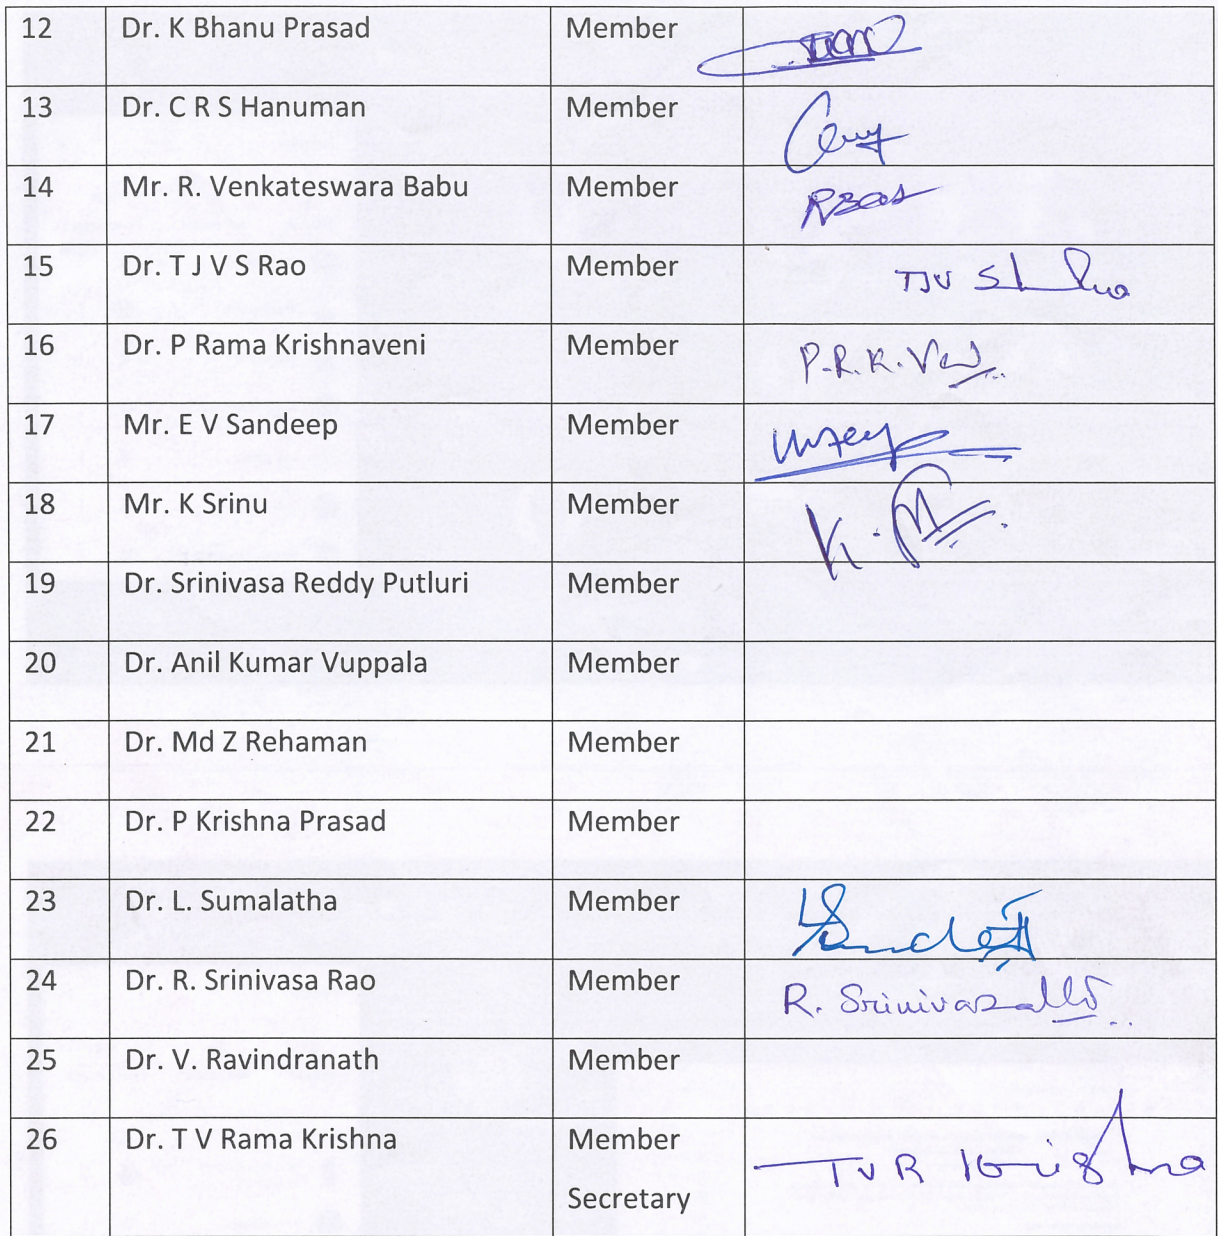 12 Dr. K Bhanu Prasad Member
13 Dr. C R S Hanuman Member
14 Mr. R. Venkateswara Babu Member
15 Dr. T J V S Rao Member TJV S
16 Dr. P Rama Krishnaveni Member P.R.K.
17 Mr. E V Sandeep Member
18 Mr. K Srinu Member K.
19 Dr. Srinivasa Reddy Putluri Member
20 Dr. Anil Kumar Vuppala Member
21 Dr. Md Z Rehaman Member
22 Dr. P Krishna Prasad Member
23 Dr. L. Sumalatha Member
24 Dr. R. Srinivasa Rao Member R.
25 Dr. V. Ravindranath Member
26 Dr. T V Rama Krishna Member TVR Krishna
Secretary